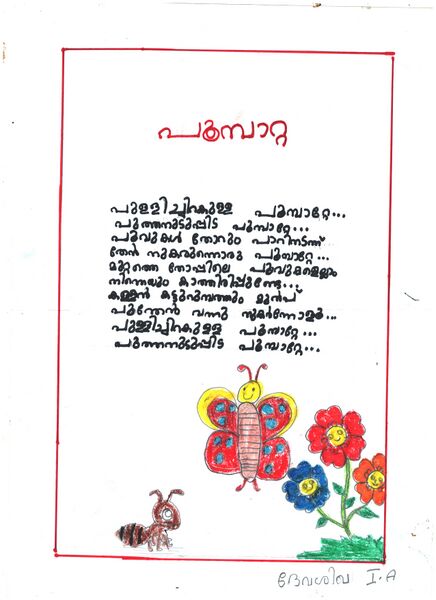 പൂമ്പാറ്റ
പുള്ളിച്ചിറകുള്ള പൂമ്പാറ്റേ...
പുത്തനുടുപ്പിട്ട പൂമ്പാറ്റേ...
പൂവുകൾ തോറും പാറിനടന്ന്
തേൻ നുകരുന്നൊരു പൂമ്പാറ്റേ...
മുറ്റത്തെ തോപ്പിലെ പൂവുകളെല്ലാം
നിന്നെയും കാത്തിരിപ്പുണ്ടേ...
കള്ളൻ കട്ടുറുമ്പെത്തും മുൻപ്
പൂന്തേൻ വന്നു നുകർന്നോളൂ...
പുള്ളിച്ചിറകുള്ള പൂമ്പാറ്റേ...
പുത്തനുടുപ്പിട്ട പൂമ്പാറ്റേ...
ദേവശിവ I.A